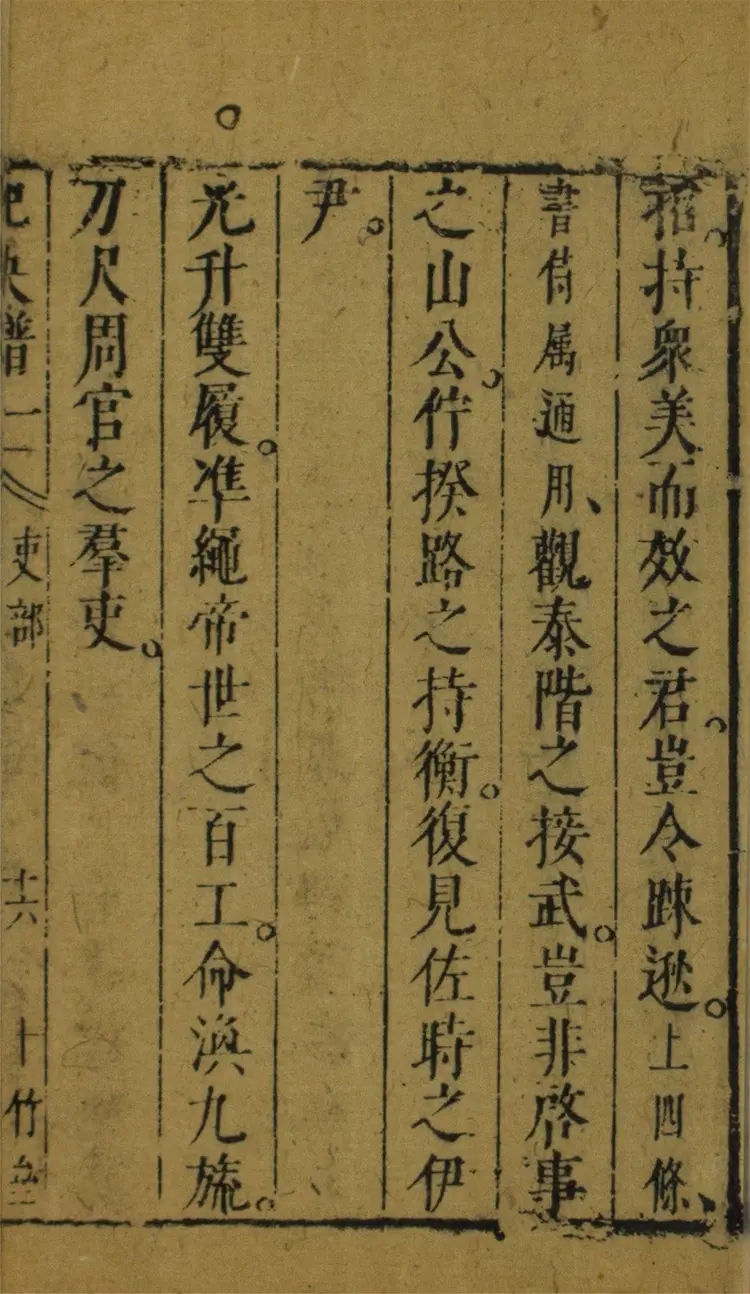 招持衆美而效之君豈令踈逖。上四條、
書侍属通用、觀泰階之接武。豈非啓事
之山公。佇揆路之持衡。復見佐時之伊
尹。
光升雙履。準繩帝世之百工。命渙九旒。
刀尺周官之羣吏。
啟譜一 吏部 十六 十竹